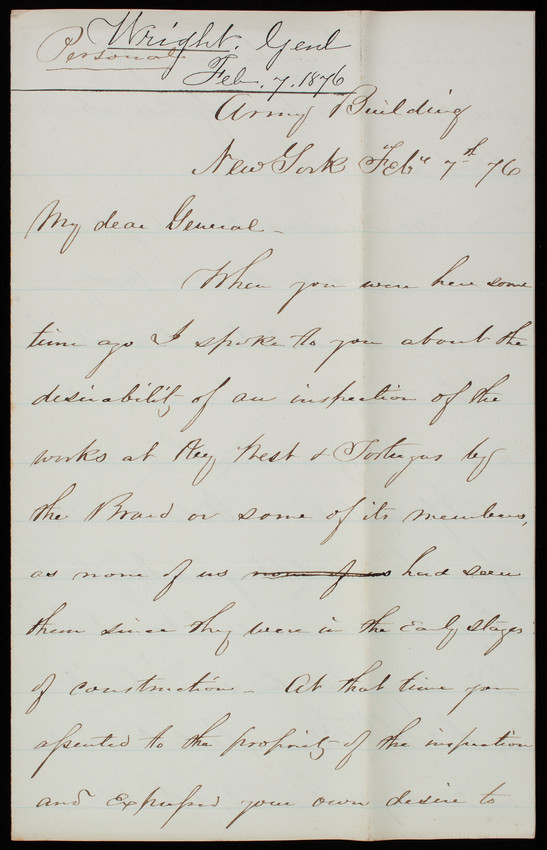 Wright. Genl
Personal
Feb. 7. 1876
Army Building
New York Feby 7th 76
My dear General -
When you were here some
time ago I spoke to you about the
desirability of an inspection of the
works at Key West & Tortugas by
the Board or some of its members,
as none of us none of us had seen
them since they were in the early stages
of construction - At that time you
assented to the propriety of the inspection
and expressed your own desire to